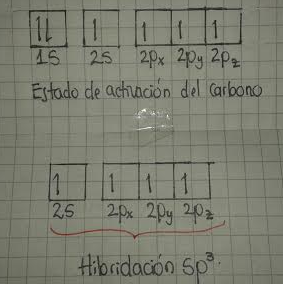 1L 1 1 1 1
1s 2s 2px 2py 2pz
Estado de activación del carbono
1 1 1 1
2s 2px 2py 2pz
Hibridación sp³.